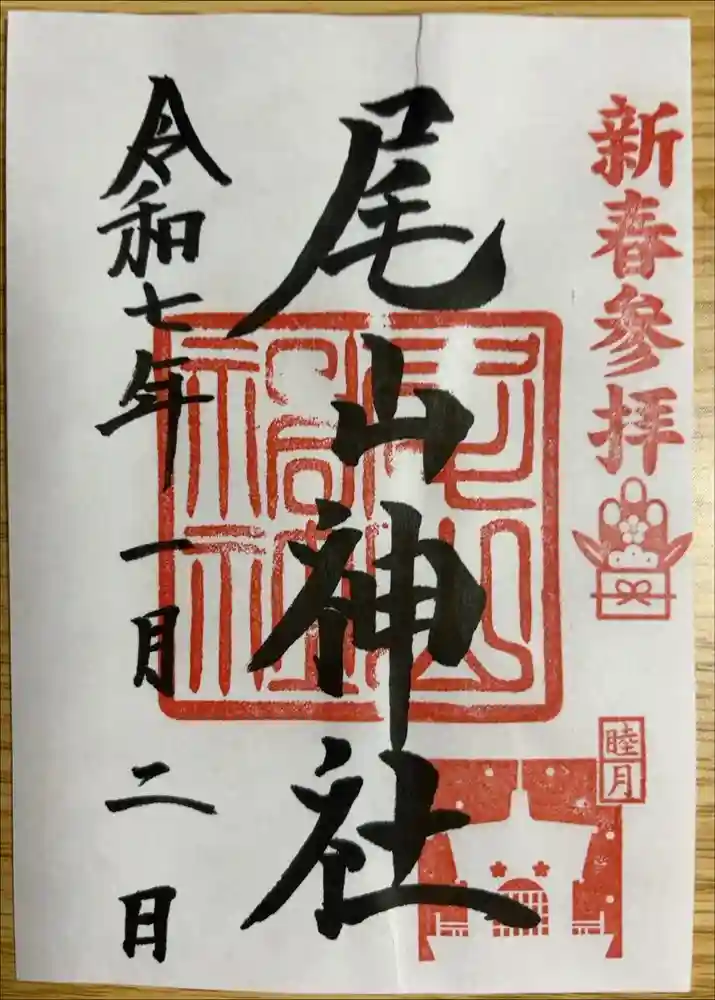 新春参拝
睦月
尾山神社
令和七年一月二日